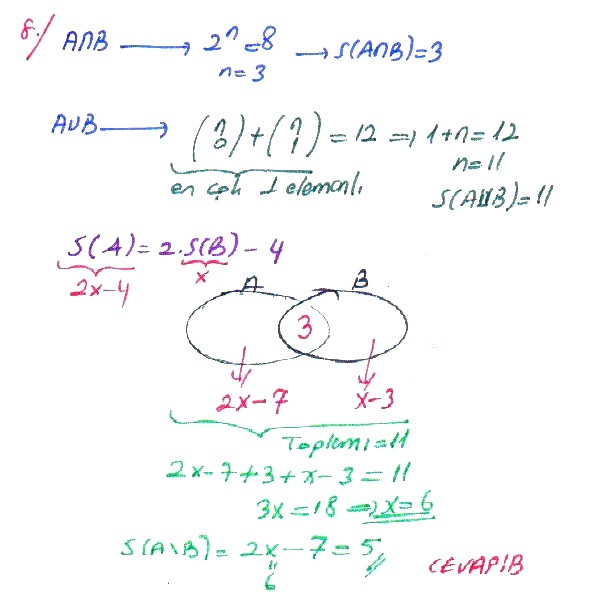 8./ A∩B ⟶ 2ⁿ = 8 ⟶ S(A∩B) = 3
n = 3
A∪B ⟶ (n 0) + (n 1) = 12 ⇒ 1 + n = 12
en çok 1 elemanlı
n = 11
S(A∪B) = 11
S(A) = 2.S(B) − 4
2x−4 x
A B
3
2x−7 x−3
Toplamı = 11
2x−7+3+x−3 = 11
3x = 18 ⇒ x = 6
S(A\B) = 2x − 7 = 5
6
CEVAP B